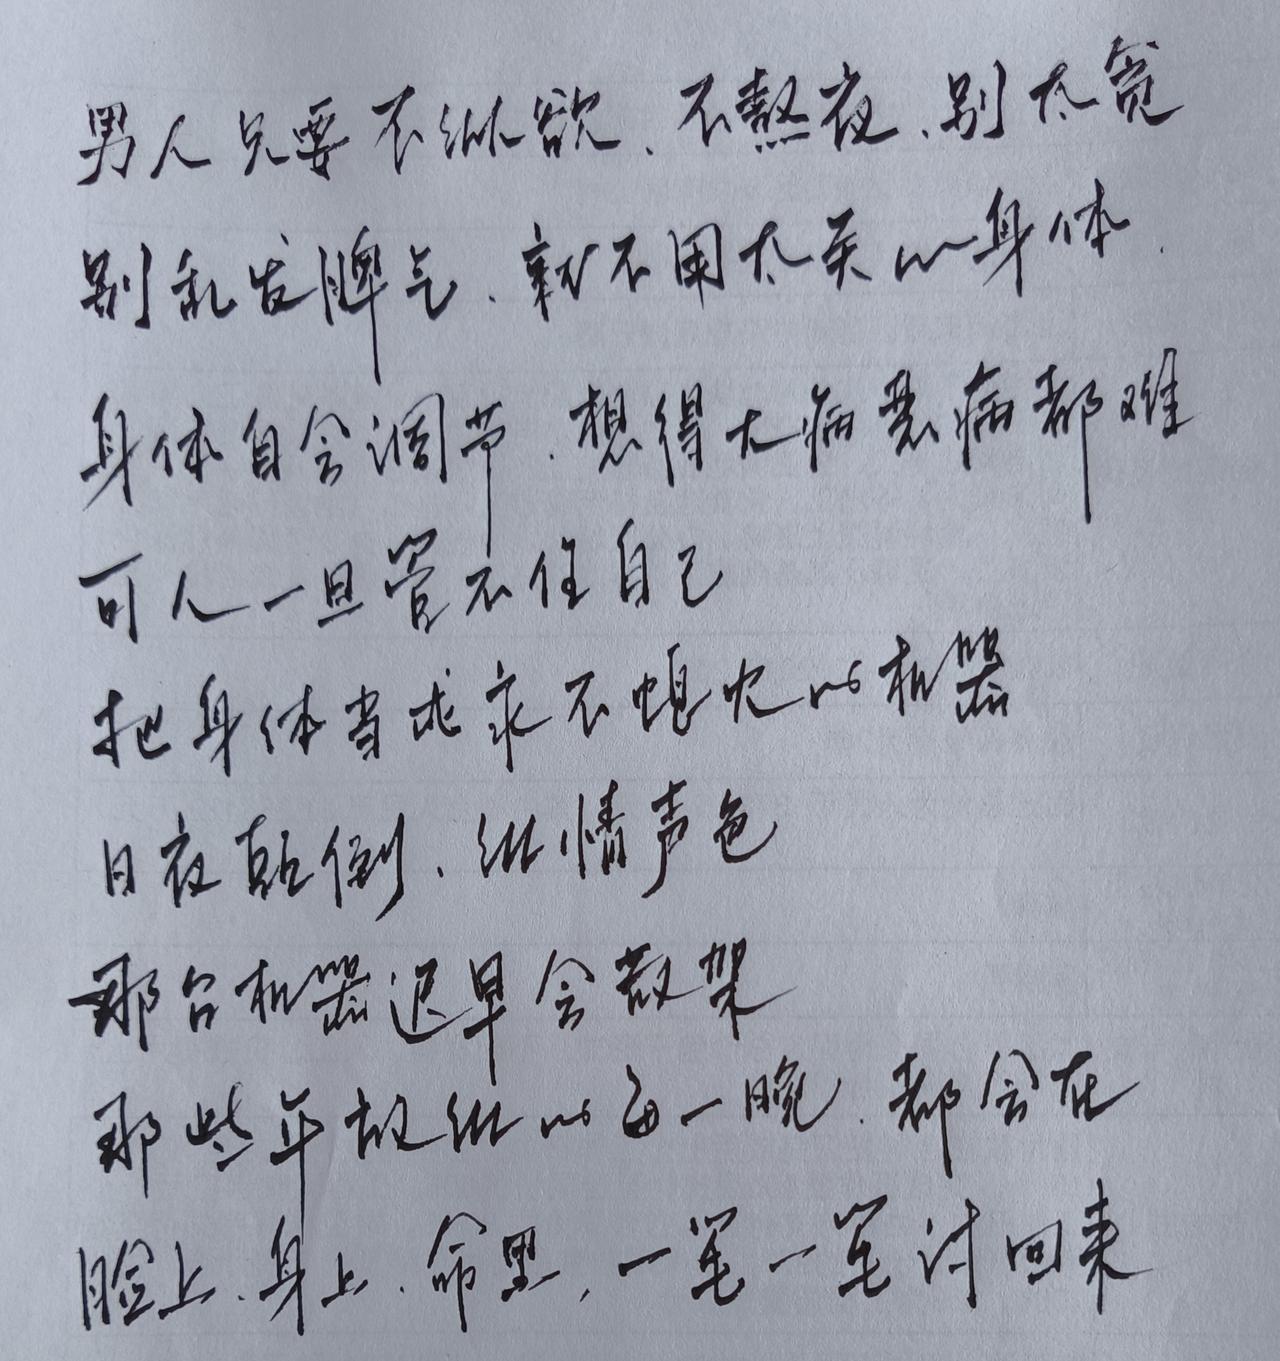 男人只要不纵欲、不熬夜、别太贪
别乱发脾气、就不用太关心身体.
身体自会调节.想得大病恶病都难
可人一旦管不住自己
把身体当成永不熄火的机器
日夜颠倒、纵情声色
那台机器迟早会散架
那些年放纵的每一晚.都会在
脸上、身上、命里,一笔一笔讨回来